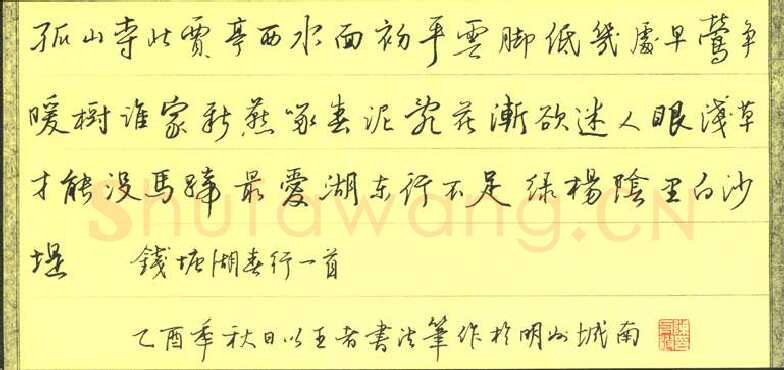 孤山寺北賈亭西水面初平雲脚低幾處早鶯争
暖樹谁家新燕啄春泥亂花漸欲迷人眼淺草
才能没馬蹄最愛湖东行不足绿楊陰里白沙
堤 錢塘湖春行一首
乙酉年秋日以王者書法筆作於明州城南
Shufawang.CN